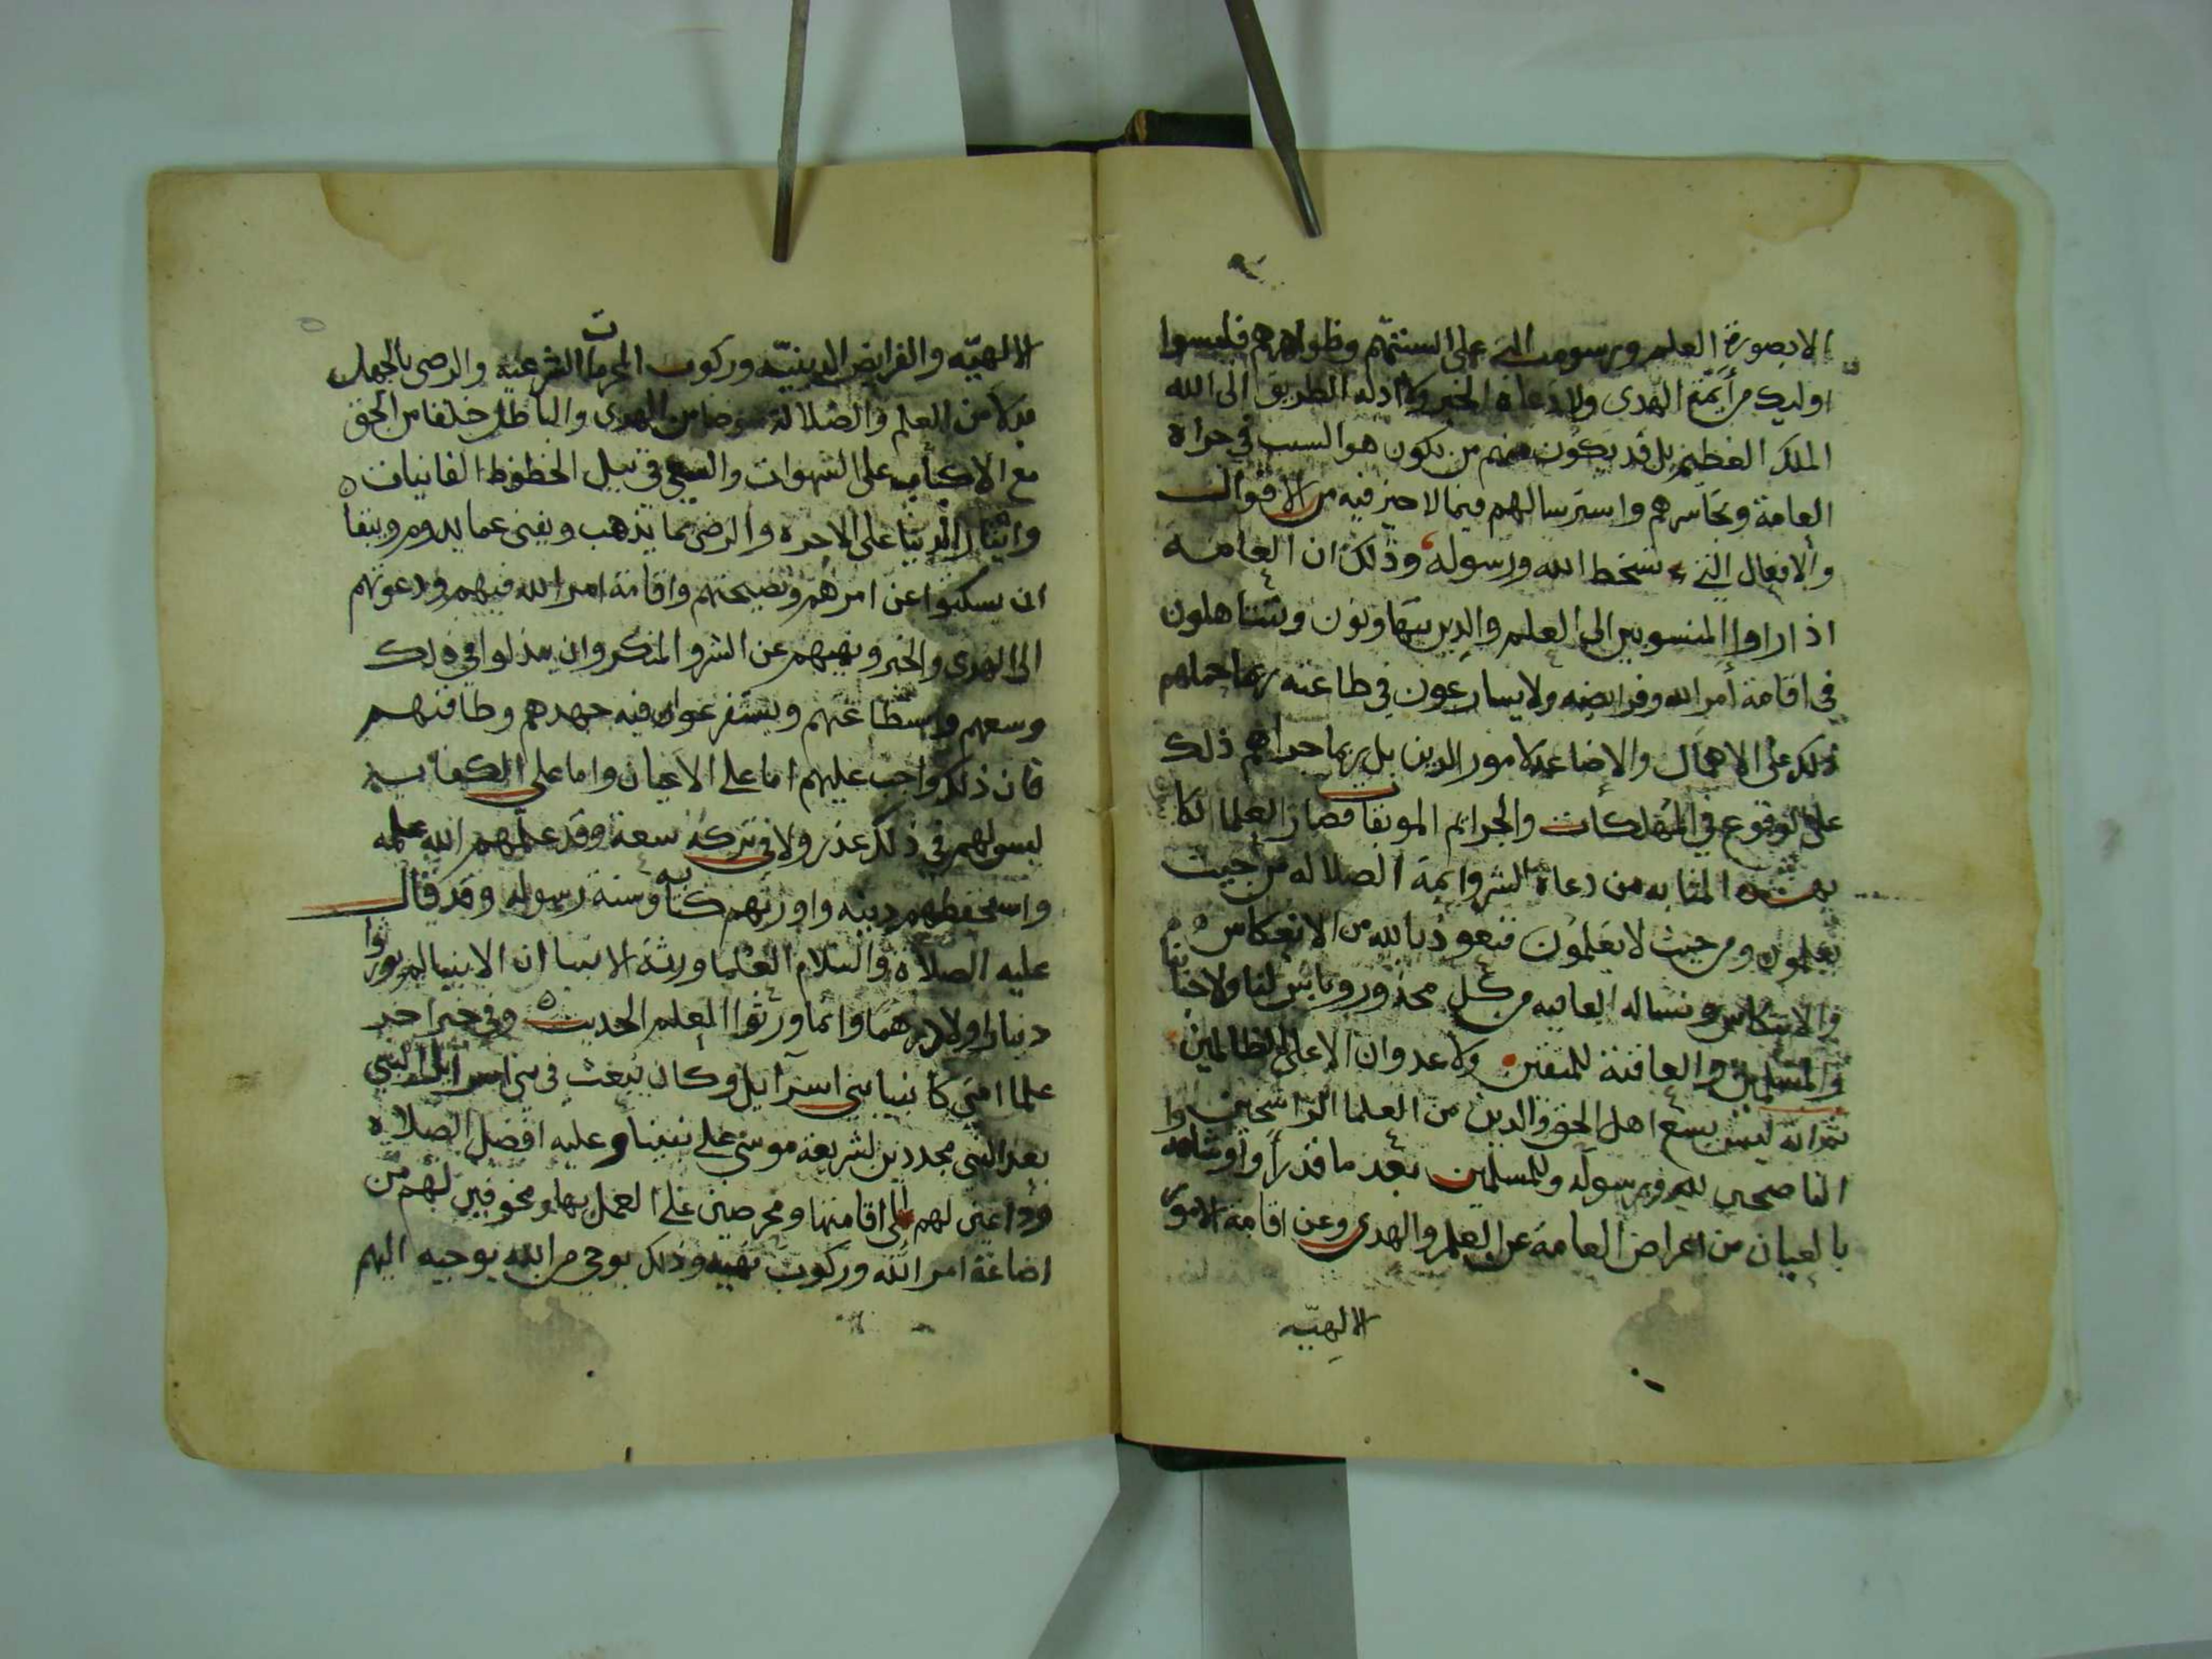 الا بصورة العلم ورسومه التي على السنتهم وظواهرهم فليسوا
اوليك من أيمة الهدى ولا دعاة الخير ولا ادلة الطريق الى الله
الملك العظيم بل قد يكون منهم من يكون هو السبب في جراة
العامة وتجاسرهم واسترسالهم فيما لا خير فيه من الاقوال
والافعال التي تسخط الله ورسوله وذلك ان العامه
اذا راوا المنسوبين الى العلم والدين يتهاونون ويتساهلون
في اقامة أمر الله وفرايضه ولا يسارعون في طاعته ربما حملهم
ذلك على الاهمال والاضاعه لامور الدين بل ربما جراهم ذلك
على الوقوع في المهلكات والجرايم الموبقات فصار العلما لكا
بهذه المثابه من دعاة الشر وايمة الضلاله من حيث
يعلمون ومن حيث لا يعلمون فنعوذ بالله من الانعكاس
والانتكاس ونساله العافيه من كل محذور وبأس لنا ولاحبابنا
والمسلمين والعاقبة للمتقين ولا عدوان الا على الظالمين
ثم انه ليس يسع اهل الحق والدين من العلما الراسخين وا
الناصحين لله ورسوله وللمسلمين بعد ما قد رأوا وشاهدوا
بالعيان من اعراض العامة عن العلم والهدى وعن اقامة الامور
الالهيّه
الالهيّه والفرايض الدينيّه وركوب المحرمات الشرعيه والرضى بالجهل
بدلا من العلم والضلالة عوضا من الهدى والباطل خلفا من الحق
مع الاكباب على الشهوات والسعي في نيل الحظوظ الفانيات
وايثار الدنيا على الاخره والرضى بما يذهب ويفنى عما يدوم ويبقا
ان يسكتوا عن امرهم ونصيحتهم واقامة امر الله فيهم ودعوتهم
الى الهدى والخير ونهيهم عن الشر والمنكر وان يبذلوا في ذلك
وسعهم واستطاعتهم ويستفرغوا فيه جهدهم وطاقتهم
فان ذلك واجب عليهم اما على الاعيان واما على الكفايه
ليس لهم في ذلك عذر ولا في تركه سعة وقد علمهم الله علمه
واستحفظهم دينه واورثهم كتابه وسنة رسوله وقد قال
عليه الصلاة والسلام العلما ورثة الانبيا ان الانبيا لم يورثوا
دينارا ولا درهما وانما ورثوا العلم الحديث وفي خبر اخر
علما امتي كانبيا بني اسرآيل وكان يبعث في بني اسرآيل النبي
بعد النبي مجددين لشريعة موسى على نبينا وعليه افضل الصلاة
وداعين لهم الى اقامتها ومحرصين على العمل بها ومخوفين لهم من
اضاعة امر الله وركوب نهيه وذلك بوحي من الله يوحيه اليهم